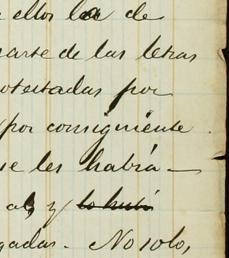 ellos la de
parte de las letras
otestadas por
por consiguiente
ue les habia
y lo hubi
gadas. No solo,